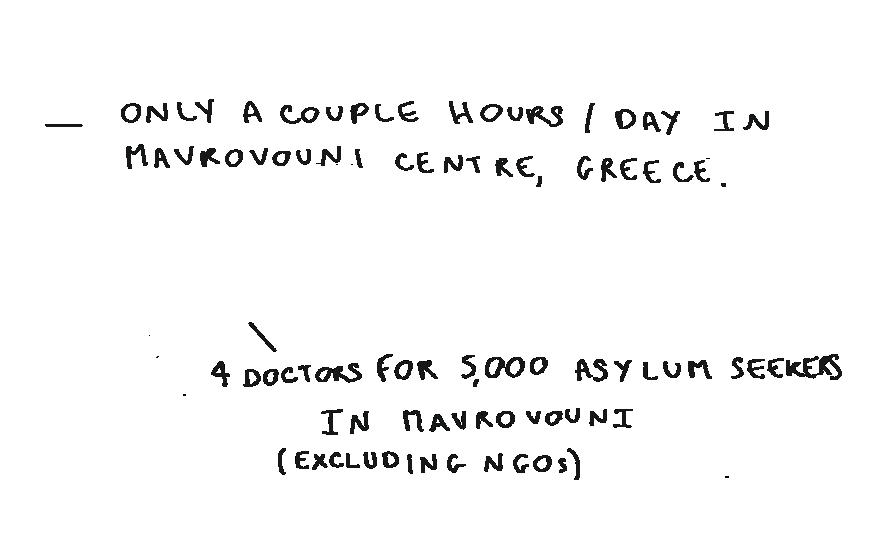 — ONLY A COUPLE HOURS / DAY IN
MAVROVOUNI CENTRE, GREECE.
4 DOCTORS FOR 5,000 ASYLUM SEEKERS
IN MAVROVOUNI
(EXCLUDING NGOs)